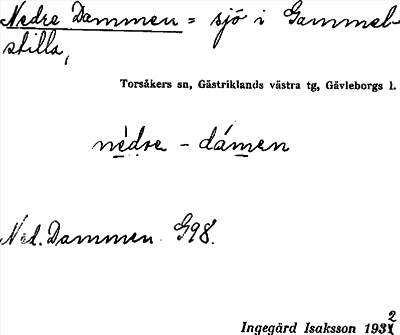 Nedre Dammen = sjö i Gammel-
stilla,
Torsåkers sn, Gästriklands västra tg, Gävleborgs l.
nèdre - dámen
Ned. Dammen G98.
Ingegärd Isaksson 1932